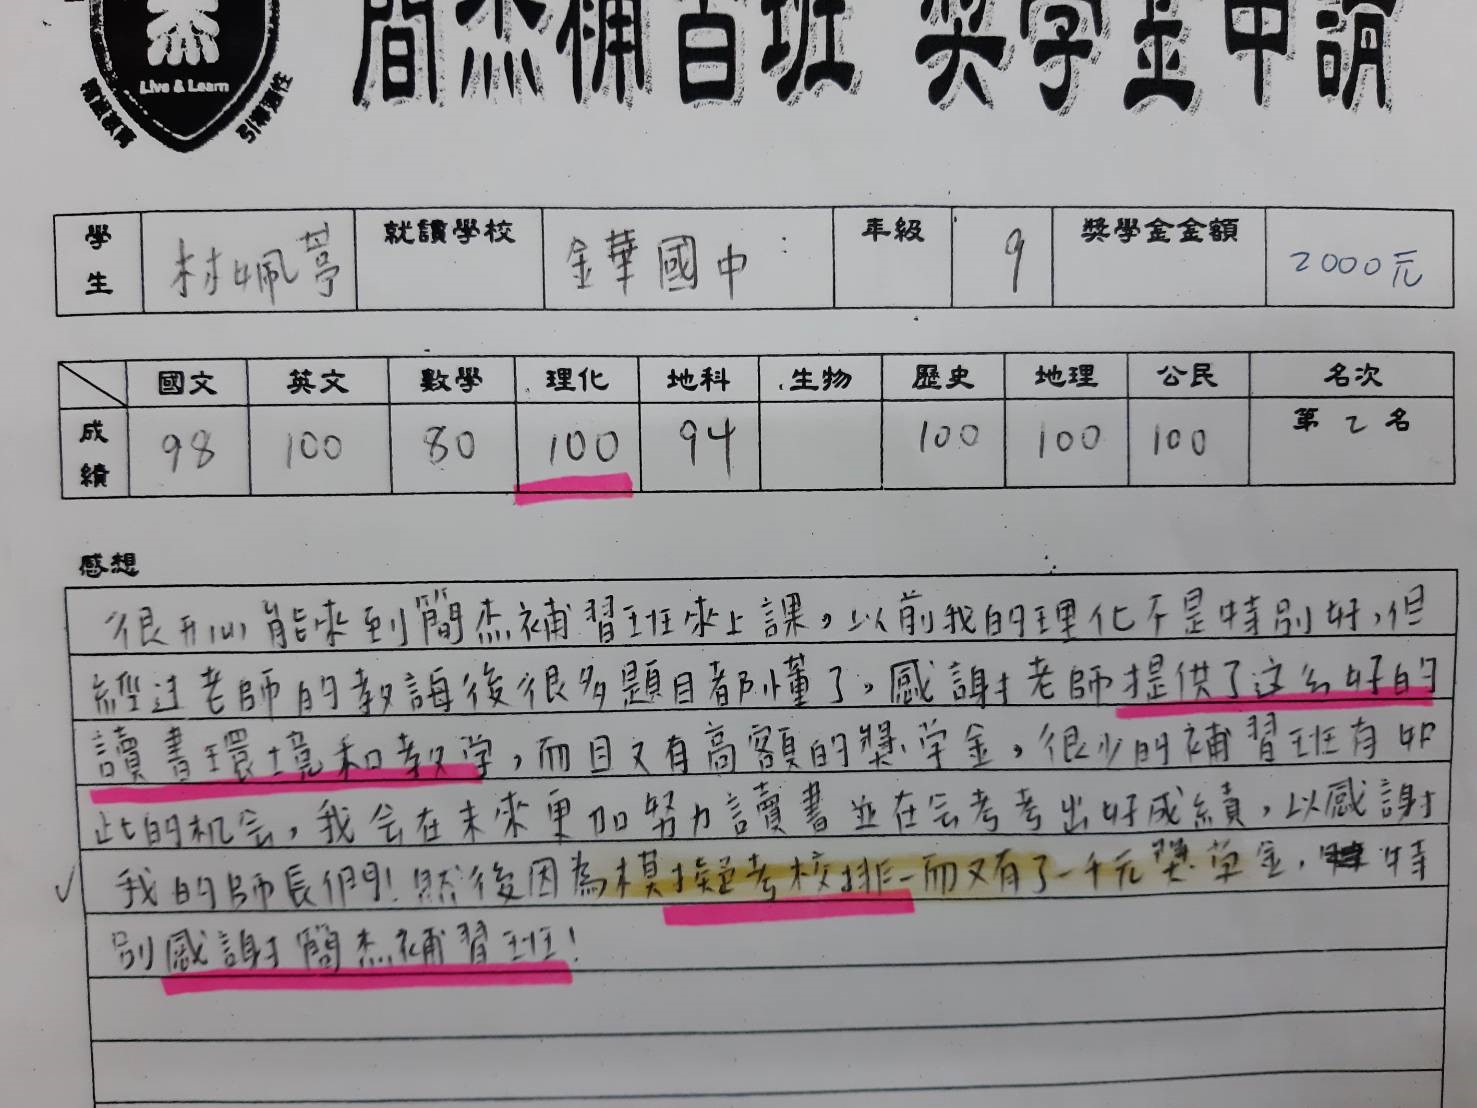 簡杰補習班 獎學金申請
Live & Learn
學生 林姵葶 就讀學校 金華國中 年級 9 獎學金金額 2000元
國文 英文 數學 理化 地科 生物 歷史 地理 公民 名次
成績 98 100 80 100 94 100 100 100 第 2 名
感想
很開心能來到簡杰補習班來上課，以前我的理化不是特別好，但
經過老師的教誨後很多題目都懂了。感謝老師提供了这么好的
讀書環境和教学，而且又有高額的獎学金，很少的補習班有如
此的机会，我会在未來更加努力讀書並在会考考出好成績，以感謝
我的師長們！然後因為模擬考校排一而又有了一千元獎學金，特
別感謝簡杰補習班！